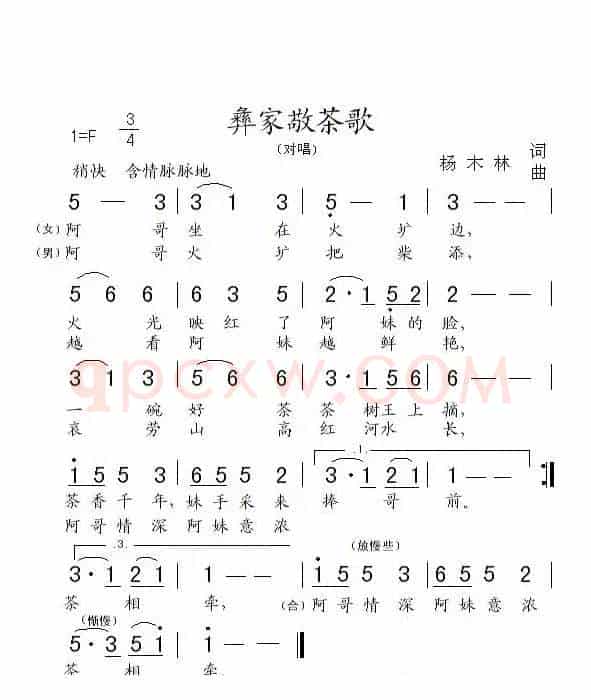 彝家敬茶歌
1=F 3/4
(对唱)
杨木林 词曲
稍快 含情脉脉地
5 — 3 | 3 1 3 | 5 — 1 | 3 — — |
(女)阿哥坐在火圹边,
(男)阿哥火圹把柴添,
5 6 6 | 6 3 5 | 2·1 5 2 | 6 — — |
火光映红了阿妹的脸,
越看阿妹越鲜艳,
3 1 3 | 5 6 6 | 3·1 5 6 | 6 — — |
一碗好茶茶树王上摘,
哀劳山高红河水长,
qpcxw.COM
1 5 5 3 | 6 5 5 2 | 3·1 2 1 | 1 — — :||
茶香千年,妹手采来捧哥前。
阿哥情深阿妹意浓
3·1 2 1 | 1 — — | 1 5 5 3 | 6 5 5 2 |
(放慢些)
茶相牵, (合)阿哥情深阿妹意浓
(渐慢)
5·3 5 1 | 1 — — ||
茶相牵.